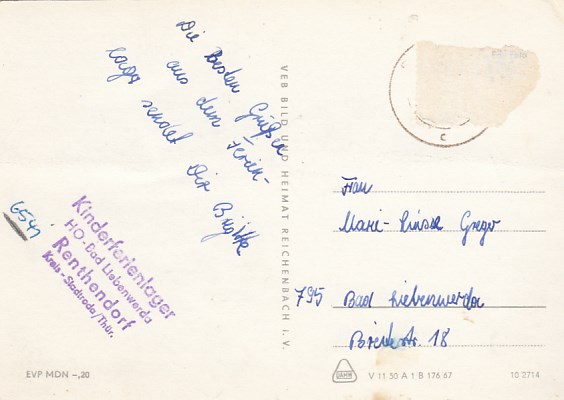 Die Besten Grüßen
aus dem Ferien-
lager sendet Dir Brigitte
6541
Kinderferienlager
HO-Bad Liebenwerda
Renthendorf
Kreis-Stadtroda/Thür.
EVP MDN -,20
VEB BILD UND HEIMAT REICHENBACH I. V.
Frau
Marie-Luise Greger
795 Bad Liebenwerda
Breitestr. 18
V 11 50 A 1 B 176/67
10 2714